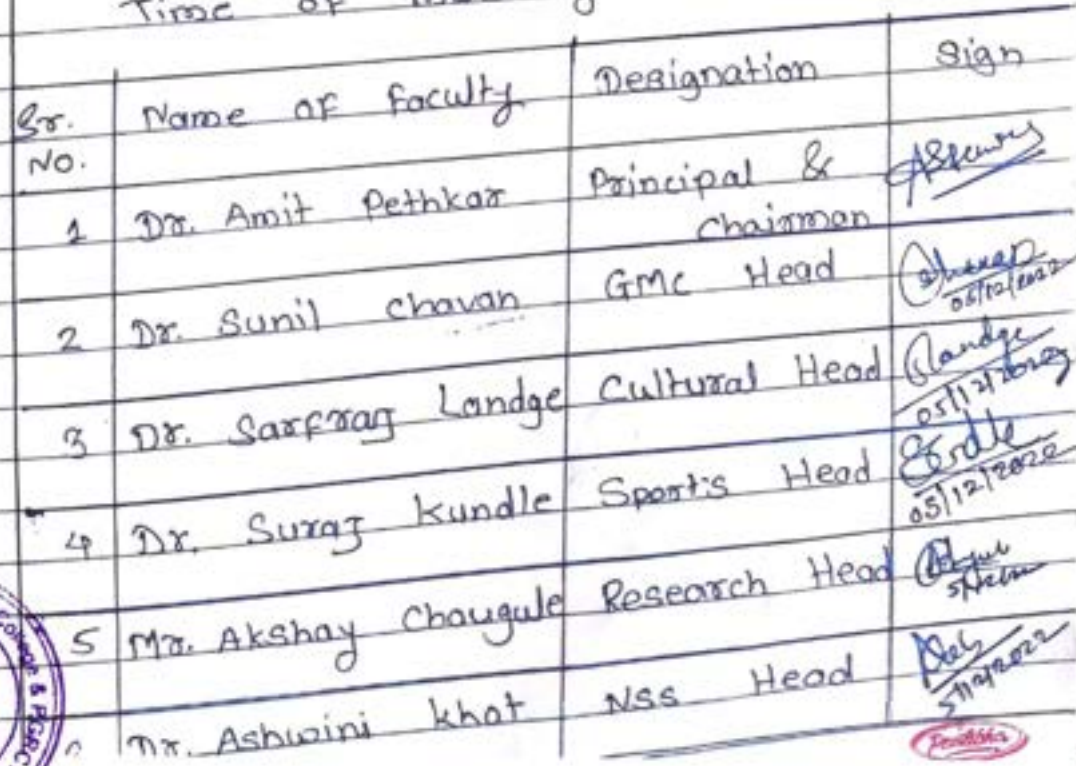 Time of
Sr. Name of faculty Designation Sign
No.
1 Dr. Amit Pethkar Principal &
Chairman
2 Dr. Sunil Chavan GMC Head
05/12/2022
3 Dr. Sarfraj Landge Cultural Head Landge
05/12/2022
4 Dr. Suraj Kundle Sports Head
05/12/2022
5 Mr. Akshay Chougule Research Head
Dr. Ashwini Khot NSS Head
5/12/2022